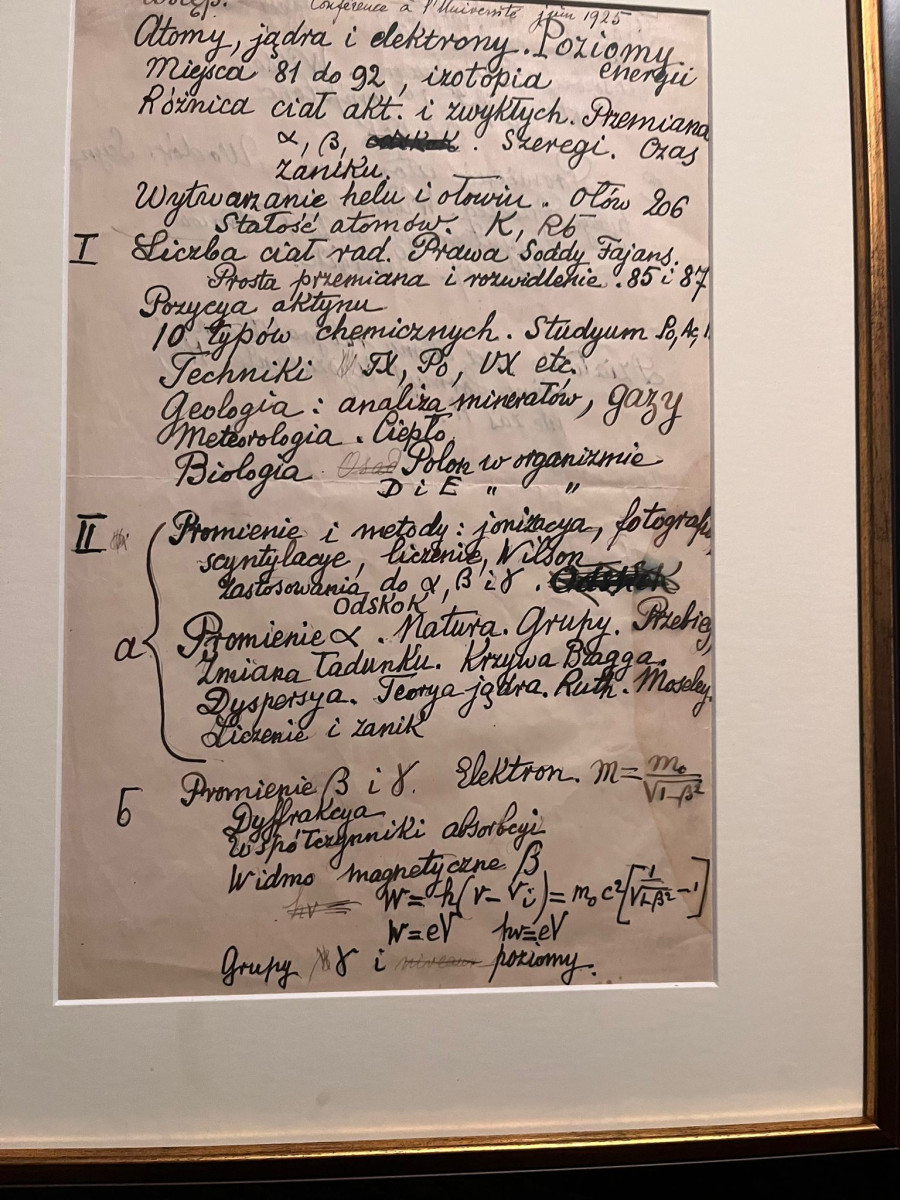 Wstęp. Conférence à l'Université juin 1925
Atomy, jądra i elektrony. Poziomy
energii
Miejsca 81 do 92, izotopia
Różnica ciał akt. i zwykłych. Przemiana
α, β, . Szeregi. Czas
zaniku.
Wytwarzanie helu i ołowiu. Ołów 206
Stałość atomów. K, Rb
I Liczba ciał rad. Prawa Soddy Fajans.
Prosta przemiana i rozwidlenie. 85 i 87
Pozycya aktynu
10 typów chemicznych. Studyum Po, Ac,
Techniki , Po, UX etc.
Geologia: analiza minerałów, gazy
Meteorologia. Ciepło.
Biologia. Osad Polon w organizmie
D i E " "
II Promienie i metody: jonizacya, fotografi
scyntylacye, liczenie, Wilson
Zastosowania do α, β i γ. Odskok
Odskok
a Promienie α. Natura. Grupy. Przebieg,
Zmiana ładunku. Krzywa Bragga.
Dyspersya. Teorya jądra. Ruth. Moseley.
Liczenie i zanik
b Promienie β i γ. Elektron. m = m₀/√1-β²
Dyffrakcya
Współczynniki absorbcyi
Widmo magnetyczne β
hν = W = h(ν - νi) = m₀c²[1/√1-β² - 1]
W = eV hν = eV
Grupy γ i niveaux poziomy.